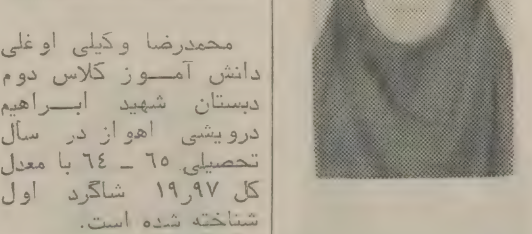 محمدرضا وکیلی اوغلی
دانش آمـــوز کلاس دوم
دبستان شهید ابـــراهیم
درویشی اهواز در سال
تحصیلی ٦٥ ـ ٦٤ با معدل
کل ۱۹٫۹۷ شاگرد اول
شناخته شده است.